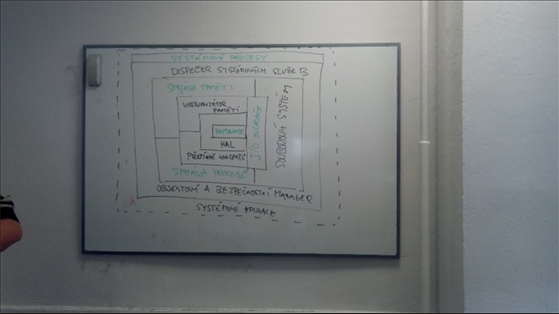 SYSTÉMOVÉ PROCESY
DISPEČER SYSTÉMOVÝCH SLUŽEB
SPRÁVA PAMĚTI
VIRTUALIZÁTOR
PAMĚTI
HARDWARE
HAL
PŘEPÍNAČ KONTEXTŮ
I/O OVLADAČE
SOUBOROVÝ SYSTÉM
SPRÁVA PROCESŮ
OBJEKTOVÝ A BEZPEČNOSTNÍ MANAGER
SYSTÉMOVÉ APLIKACE